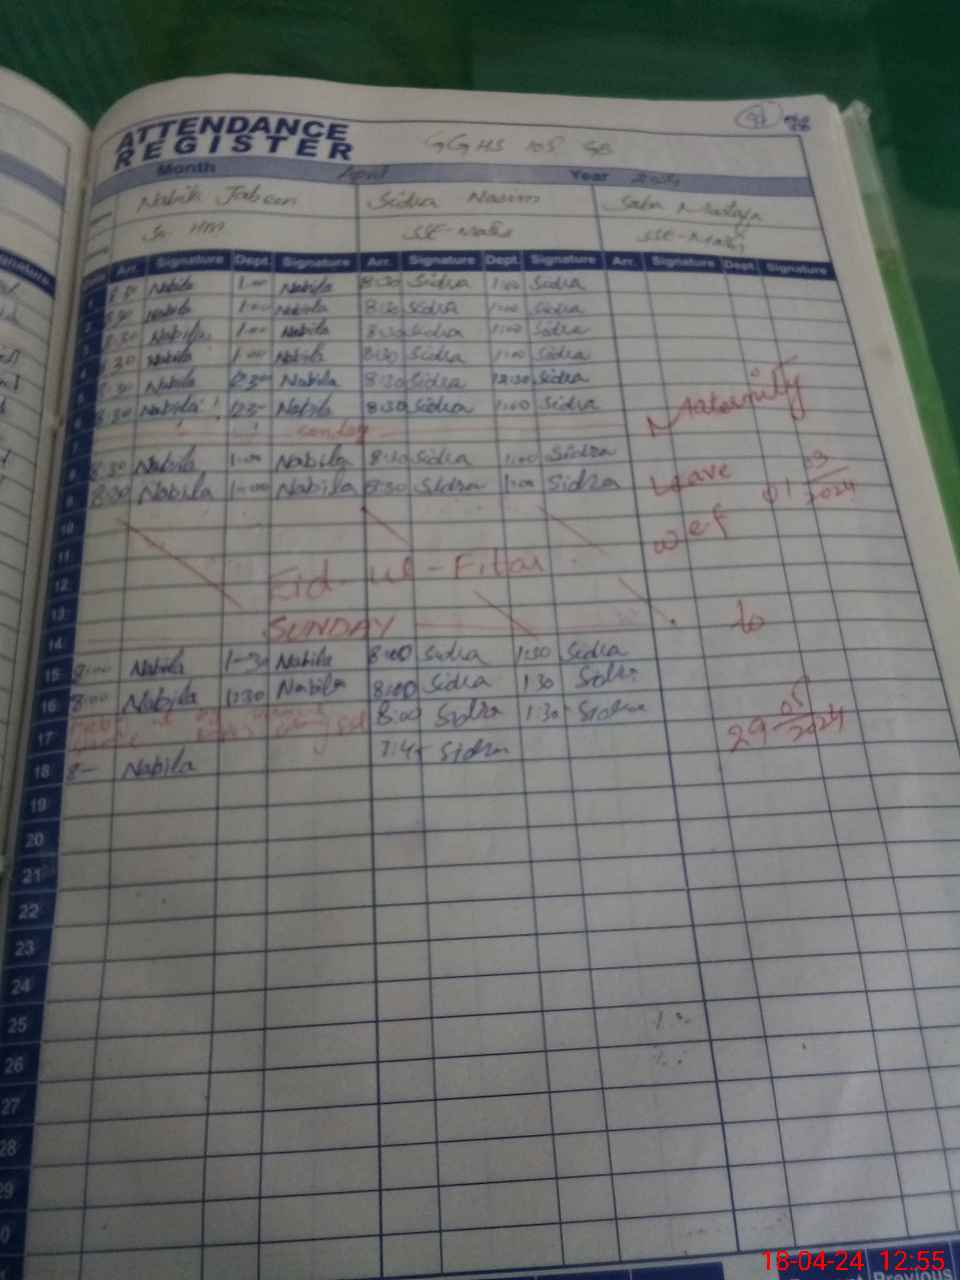 ATTENDANCE
REGISTER
GGHS 105 GB
Month April Year 2024
Nabila Jabeen Sidra Nasim Saba Mustafa
Sr. HM SSE-Maths SSE-
Arr. Signature Dept. Signature Arr. Signature Dept. Signature Arr. Signature Dept. Signature
1 8:30 Nabila 1:00 Nabila 8:30 Sidra 1:00 Sidra
2 8:30 Nabila 1:00 Nabila 8:30 Sidra 1:00 Sidra
3 8:30 Nabila 1:00 Nabila 8:30 Sidra 1:00 Sidra
4 8:30 Nabila 1:00 Nabila 8:30 Sidra 1:00 Sidra
5 8:30 Nabila 12:30 Nabila 8:30 Sidra 12:30 Sidra
6 8:30 Nabila Nabila 8:30 Sidra 1:00 Sidra
Sunday
Maternity
8 8:30 Nabila 1:00 Nabila 8:30 Sidra 1:00 Sidra
9 8:30 Nabila 1:00 Nabila 8:30 Sidra 1:00 Sidra
Leave 01 03 2024
10
wef
11
12 Eid-ul-Fitar
13
14 SUNDAY
to
15 8:00 Nabila 1:30 Nabila 8:00 Sidra 1:30 Sidra
16 8:00 Nabila 1:30 Nabila 8:00 Sidra 1:30 Sidra
17 8:00 Sidra 1:30 Sidra
29 05 2024
18 8- Nabila 7:45 Sidra
19
20
21
22
23
24
25
26
27
28
29
0
Previous
18-04-24 12:55